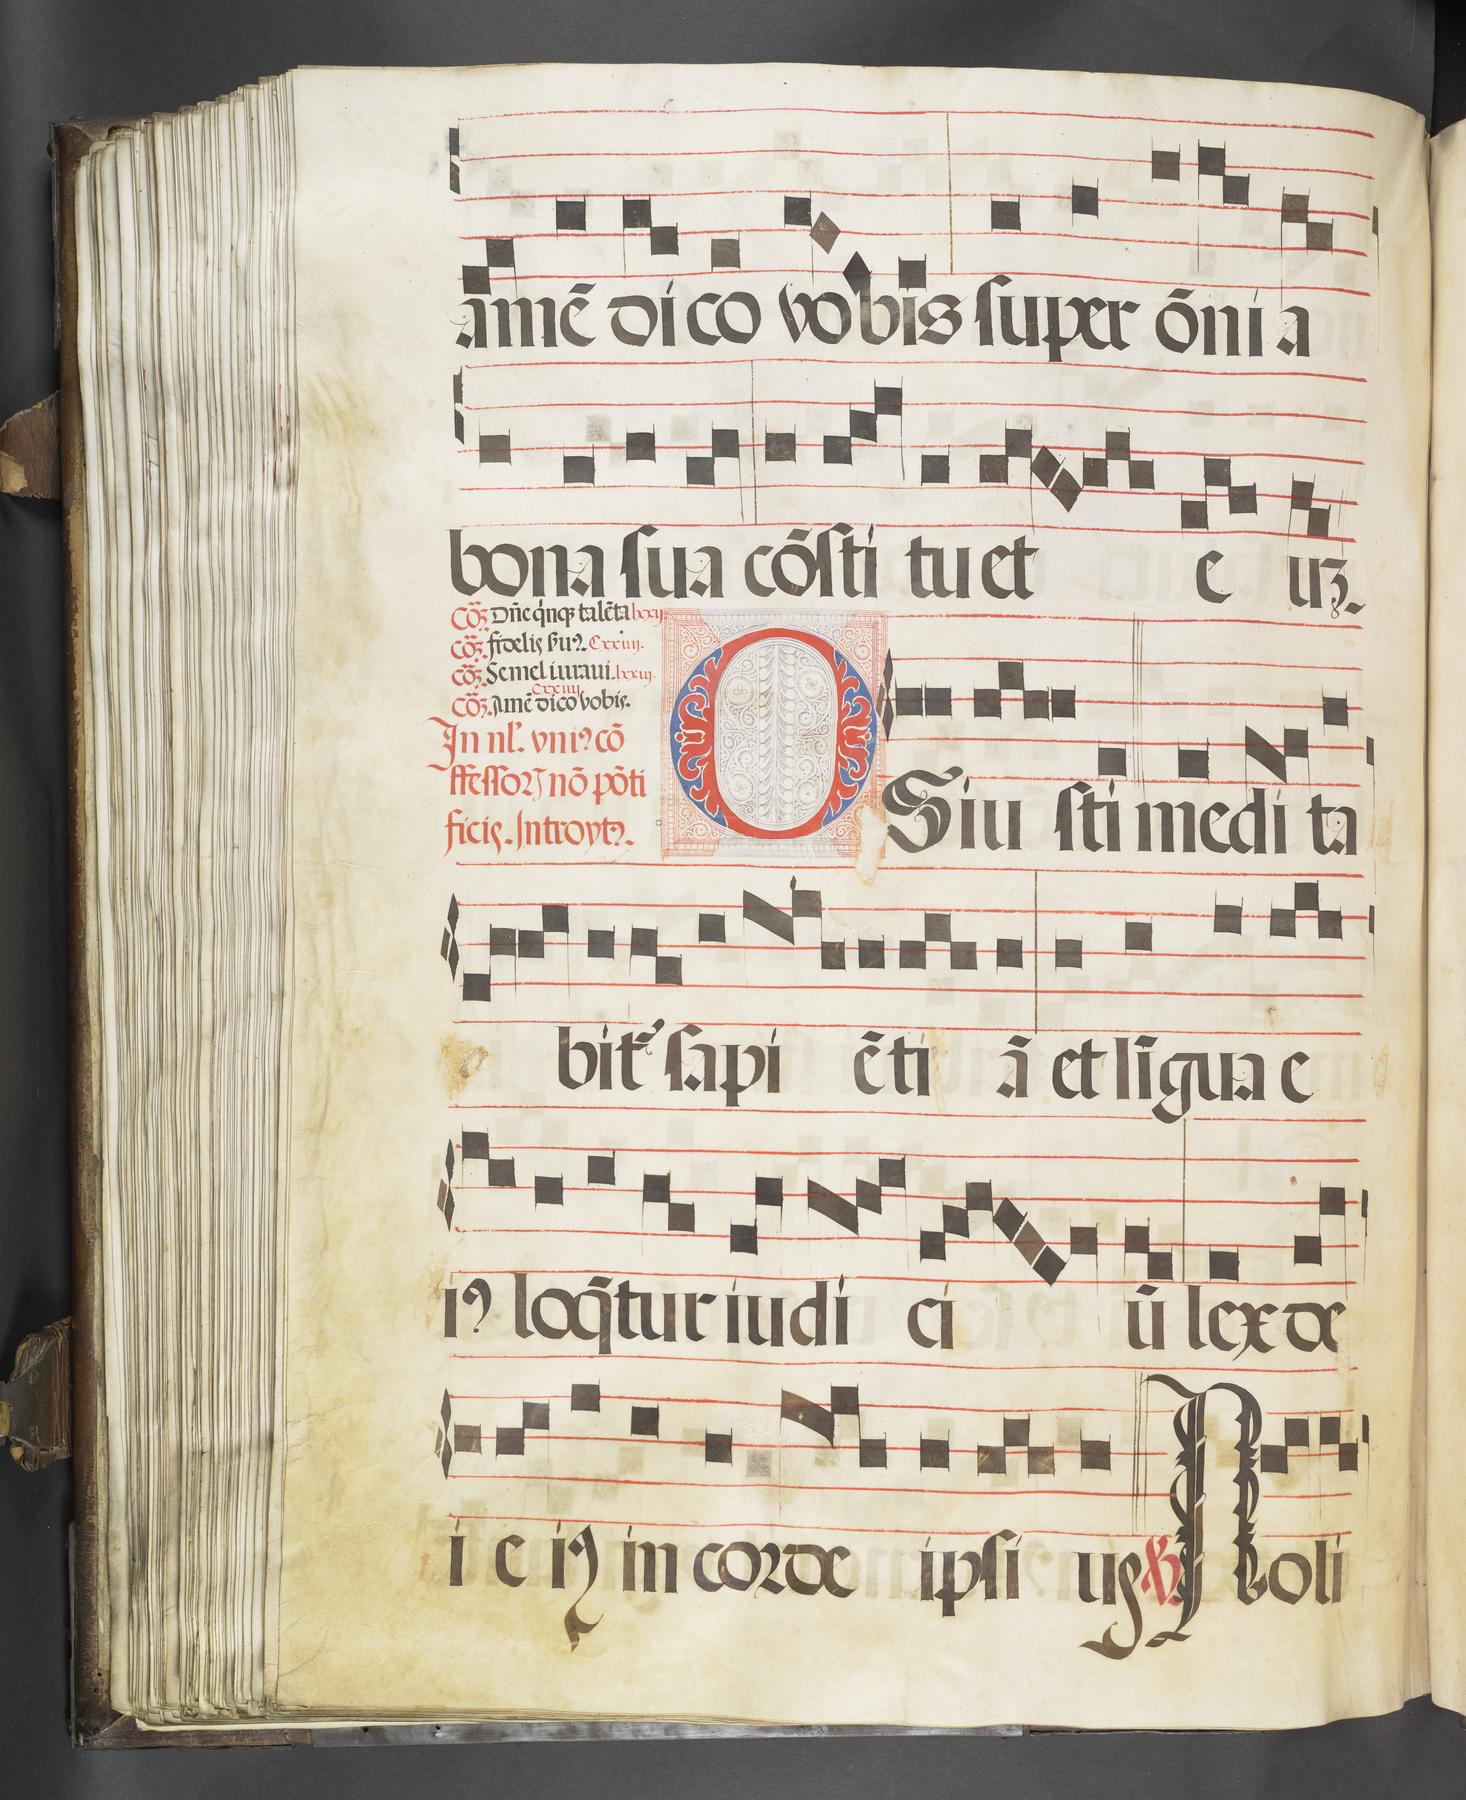 amē dico vobis super ōnia
bona sua cōsti tuet e uꝫ.
Cōꝫ Dñe q̇nqꝫ talēta lxxij
cōꝫ. fidelis
cōꝫ. Semel iuraui. lxxiij.
cxxiiij
cōꝫ. Amē dico vobis.
In nl̄. vniꝰ cō
ffessoꝝ nō pōti
ficis. Introytꝰ.
OS iu sti medi ta
bit̄ sapi ēti ā et līgua e
iꝰ loq̄tur iudi ci ū lex de
i e iꝰ in corde ipsi us ℣ Noli